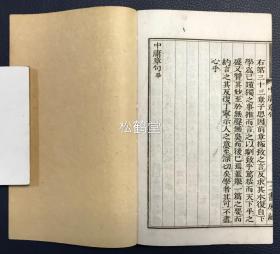 中庸章句
右第三十三章子思因前章極致之言反求其本復自下
學為己謹獨之事推而言之以馴致乎篤恭而天下平之
盛又贊其妙至於無聲無臭而後已焉蓋舉一篇之要而
約言之其反復丁寧示人之意至深切矣學者其可不盡
心乎
中庸章句畢
松鹤堂